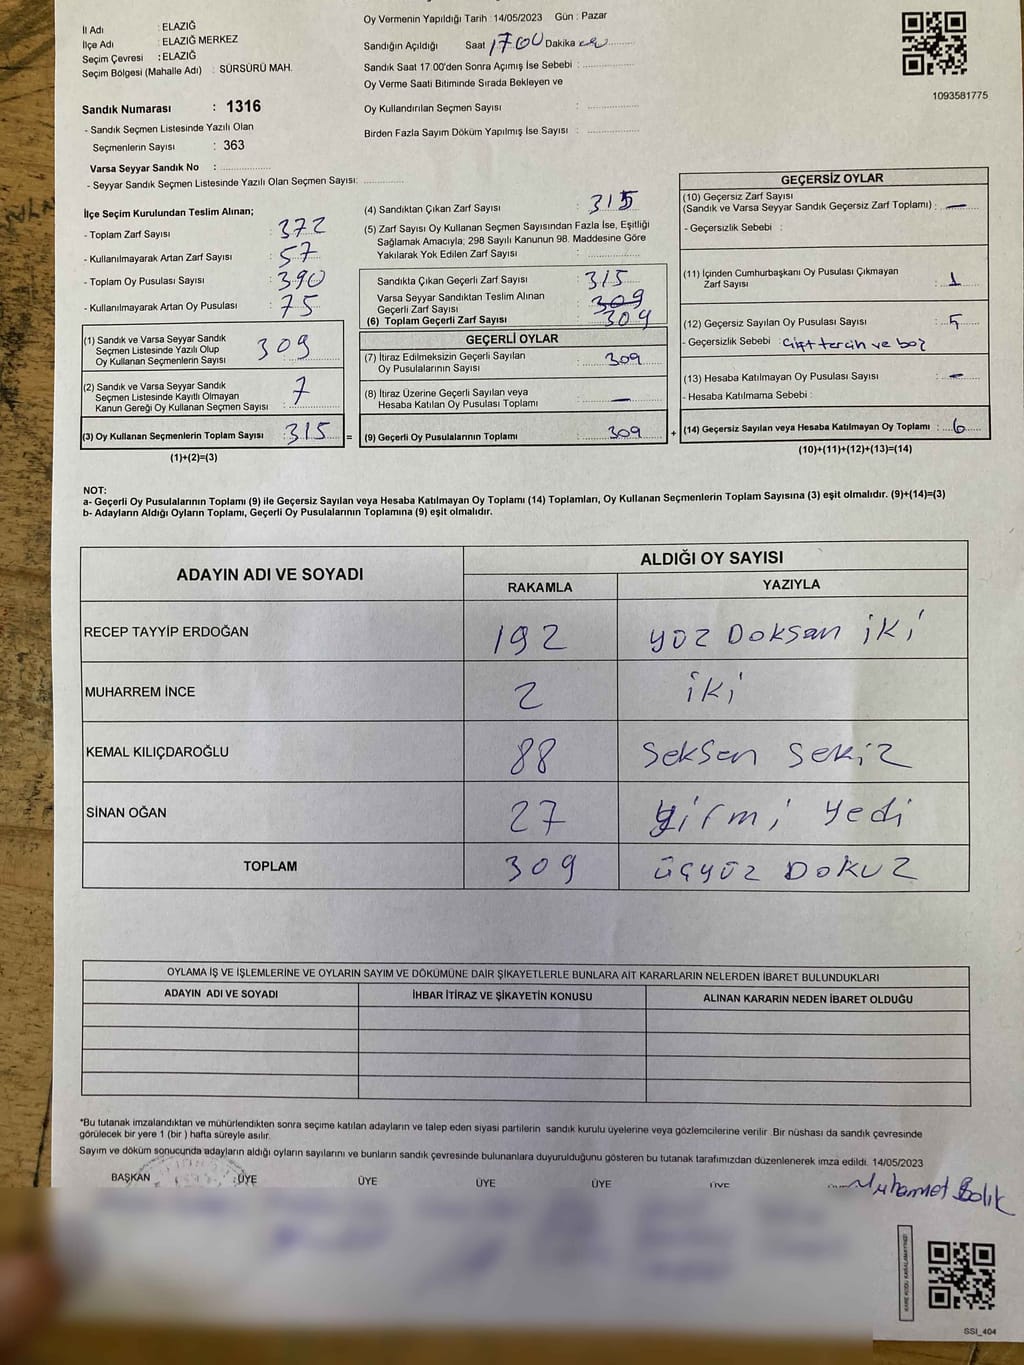 İl Adı : ELAZIĞ
İlçe Adı : ELAZIĞ MERKEZ
Seçim Çevresi : ELAZIĞ
Seçim Bölgesi (Mahalle Adı) : SÜRSÜRÜ MAH.
Sandık Numarası : 1316
- Sandık Seçmen Listesinde Yazılı Olan
Seçmenlerin Sayısı : 363
Varsa Seyyar Sandık No :
- Seyyar Sandık Seçmen Listesinde Yazılı Olan Seçmen Sayısı:
Oy Vermenin Yapıldığı Tarih : 14/05/2023 Gün : Pazar
Sandığın Açıldığı Saat 1700 Dakika
Sandık Saat 17.00'den Sonra Açımış İse Sebebi :
Oy Verme Saati Bitiminde Sırada Bekleyen ve
Oy Kullandırılan Seçmen Sayısı :
Birden Fazla Sayım Döküm Yapılmış İse Sayısı :
1093581775
İlçe Seçim Kurulundan Teslim Alınan;
- Toplam Zarf Sayısı : 372
- Kullanılmayarak Artan Zarf Sayısı : 57
- Toplam Oy Pusulası Sayısı : 390
- Kullanılmayarak Artan Oy Pusulası : 75
(1) Sandık ve Varsa Seyyar Sandık
Seçmen Listesinde Yazılı Olup
Oy Kullanan Seçmenlerin Sayısı : 309
(2) Sandık ve Varsa Seyyar Sandık
Seçmen Listesinde Kayıtlı Olmayan
Kanun Gereği Oy Kullanan Seçmen Sayısı : 7
(3) Oy Kullanan Seçmenlerin Toplam Sayısı : 315 =
(1)+(2)=(3)
(4) Sandıktan Çıkan Zarf Sayısı : 315
(5) Zarf Sayısı Oy Kullanan Seçmen Sayısından Fazla İse, Eşitliği
Sağlamak Amacıyla; 298 Sayılı Kanunun 98. Maddesine Göre
Yakılarak Yok Edilen Zarf Sayısı :
Sandıkta Çıkan Geçerli Zarf Sayısı : 315
Varsa Seyyar Sandıktan Teslim Alınan
Geçerli Zarf Sayısı : 309
(6) Toplam Geçerli Zarf Sayısı : 309
GEÇERLİ OYLAR
(7) İtiraz Edilmeksizin Geçerli Sayılan
Oy Pusulalarının Sayısı : 309
(8) İtiraz Üzerine Geçerli Sayılan veya
Hesaba Katılan Oy Pusulası Toplamı : —
(9) Geçerli Oy Pusulalarının Toplamı : 309 +
GEÇERSİZ OYLAR
(10) Geçersiz Zarf Sayısı
(Sandık ve Varsa Seyyar Sandık Geçersiz Zarf Toplamı) : —
- Geçersizlik Sebebi :
(11) İçinden Cumhurbaşkanı Oy Pusulası Çıkmayan
Zarf Sayısı : 1
(12) Geçersiz Sayılan Oy Pusulası Sayısı : 5
- Geçersizlik Sebebi : çift tercih ve boş
(13) Hesaba Katılmayan Oy Pusulası Sayısı : —
- Hesaba Katılmama Sebebi :
(14) Geçersiz Sayılan veya Hesaba Katılmayan Oy Toplamı : 6
(10)+(11)+(12)+(13)=(14)
NOT:
a- Geçerli Oy Pusulalarının Toplamı (9) ile Geçersiz Sayılan veya Hesaba Katılmayan Oy Toplamı (14) Toplamları, Oy Kullanan Seçmenlerin Toplam Sayısına (3) eşit olmalıdır. (9)+(14)=(3)
b- Adayların Aldığı Oyların Toplamı, Geçerli Oy Pusulalarının Toplamına (9) eşit olmalıdır.
ADAYIN ADI VE SOYADI ALDIĞI OY SAYISI
RAKAMLA YAZIYLA
RECEP TAYYİP ERDOĞAN 192 yüz Doksan iki
MUHARREM İNCE 2 iki
KEMAL KILIÇDAROĞLU 88 Seksen Sekiz
SİNAN OĞAN 27 yirmi yedi
TOPLAM 309 üçyüz Dokuz
OYLAMA İŞ VE İŞLEMLERİNE VE OYLARIN SAYIM VE DÖKÜMÜNE DAİR ŞİKAYETLERLE BUNLARA AİT KARARLARIN NELERDEN İBARET BULUNDUKLARI
ADAYIN ADI VE SOYADI İHBAR İTİRAZ VE ŞİKAYETİN KONUSU ALINAN KARARIN NEDEN İBARET OLDUĞU
*Bu tutanak imzalandıktan ve mühürlendikten sonra seçime katılan adayların ve talep eden siyasi partilerin sandık kurulu üyelerine veya gözlemcilerine verilir .Bir nüshası da sandık çevresinde
görülecek bir yere 1 (bir ) hafta süreyle asılır.
Sayım ve döküm sonucunda adayların aldığı oyların sayılarını ve bunların sandık çevresinde bulunanlara duyurulduğunu gösteren bu tutanak tarafımızdan düzenlenerek imza edildi. 14/05/2023
BAŞKAN ÜYE ÜYE ÜYE ÜYE ÜYE
SSI_404